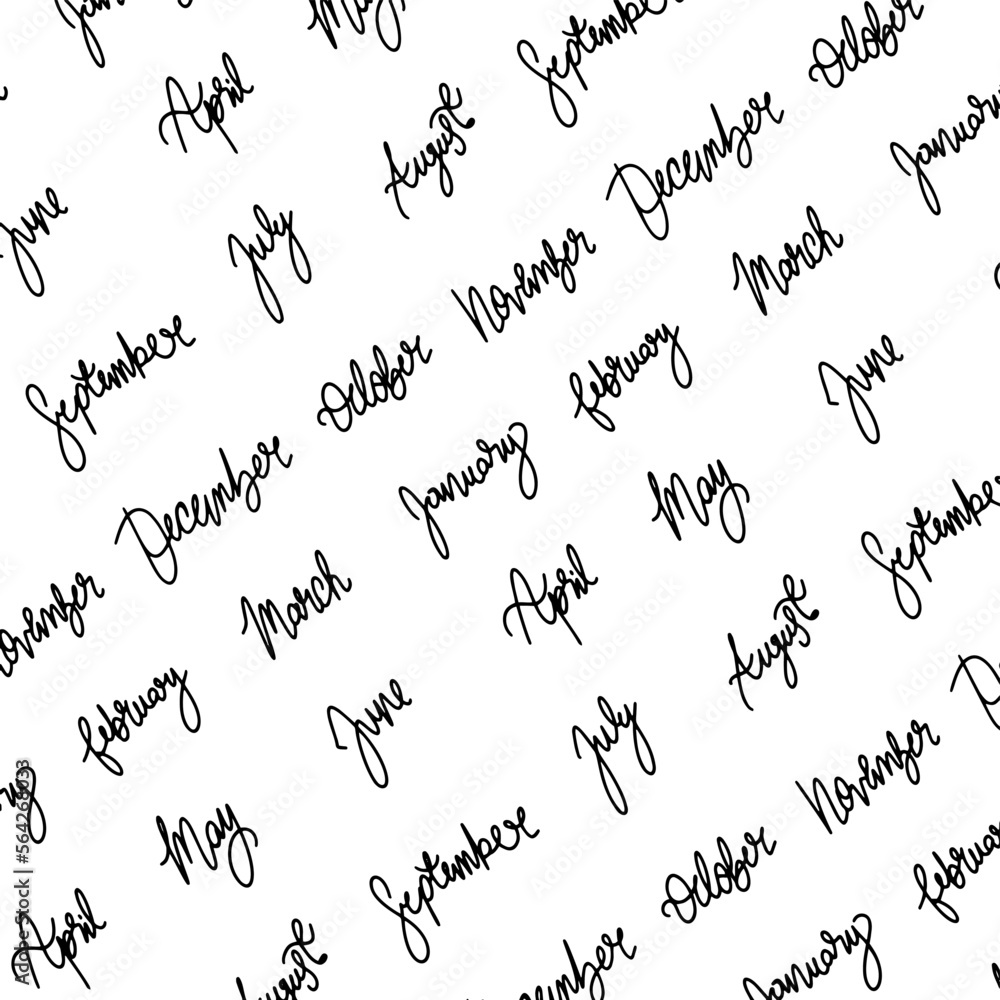 May
September
October
April
August
December
January
June
July
November
March
September
October
February
June
December
January
May
September
November
March
April
August
February
June
July
November
May
September
October
February
April
August
December
January
Adobe Stock | #564268033